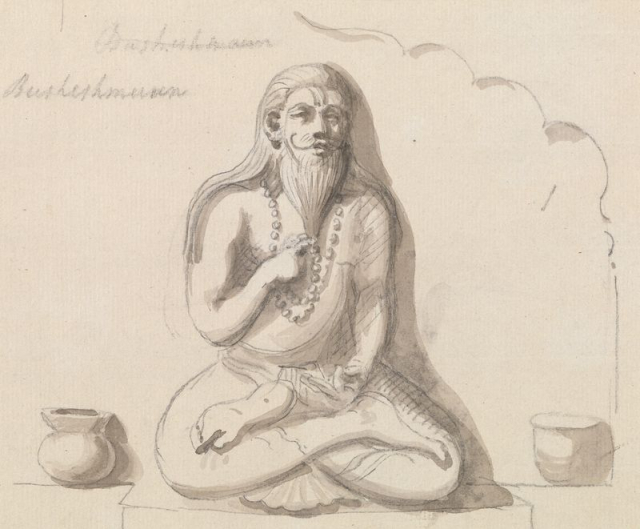 Busheshmuun
Busheshmuun